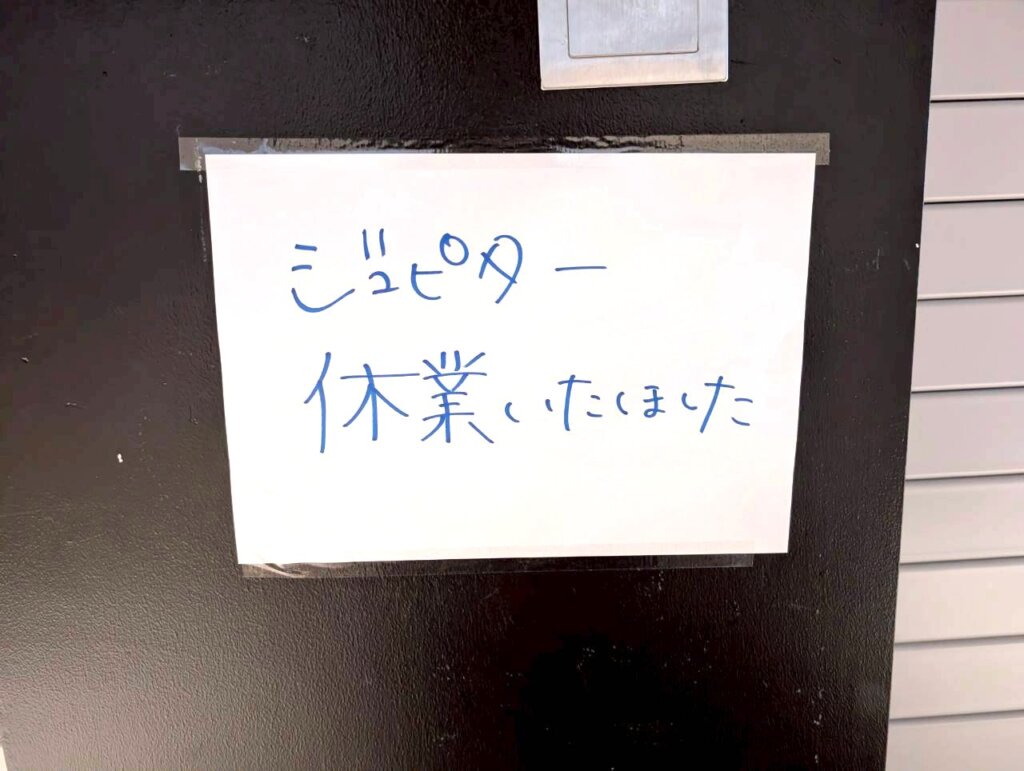 ジュピター
休業いたしました